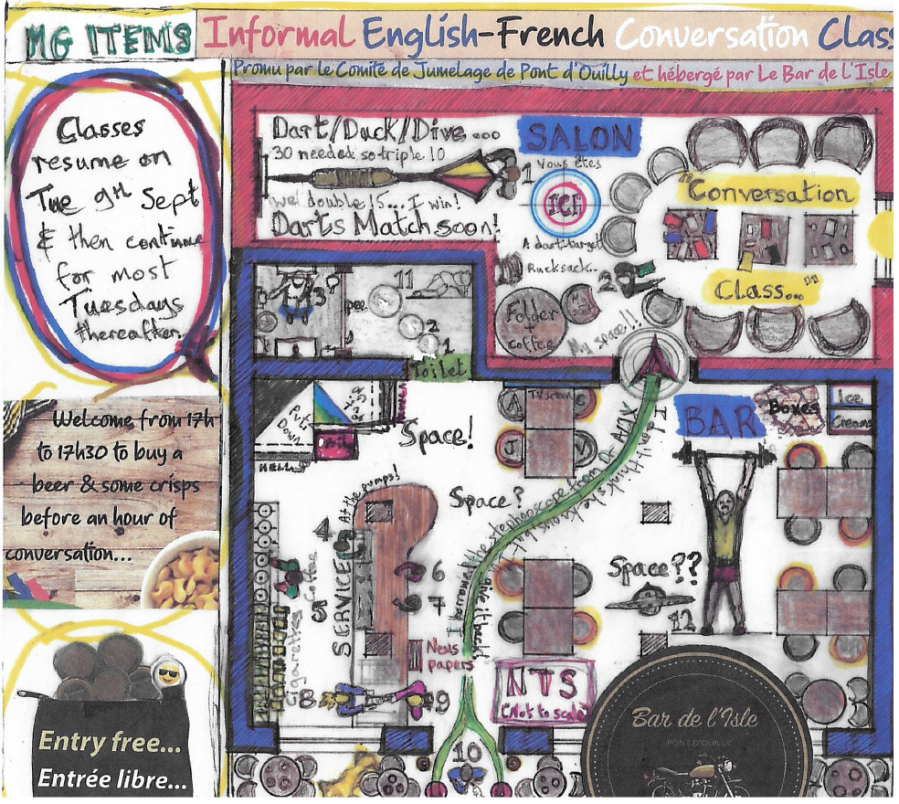 MG ITEMS
Informal English-French Conversation Clas
Promu par le Comité de Jumelage de Pont d'Ouilly et hébergé par Le Bar de l'Isle
Classes
resume on
Tue 9th Sept
& then continue
for most
Tuesdays
thereafter..
Welcome from 17h
to 17h30 to buy a
beer & some crisps
before an hour of
conversation...
Entry free...
Entrée libre...
Dart/Duck/Dive...
30 needed so triple 10
double 15... I win!
Darts Match soon!
SALON
1
Vous êtes
ICI
A dart target
Rucksack..
2
"Conversation
Class..."
Folder
+
coffee
My space!!
3
pee
11
2
1
Toilet
Space!
TV screen
A
C
J
V
Space?
BAR
Boxes
Ice
Creams
Space??
12
At the pumps!
4
SERVICE
5
Coffee
Cigarettes
6
7
News
papers
8
9
10
NTS
(Not to scale)
Bar de l'Isle
PONT D'OUILLY